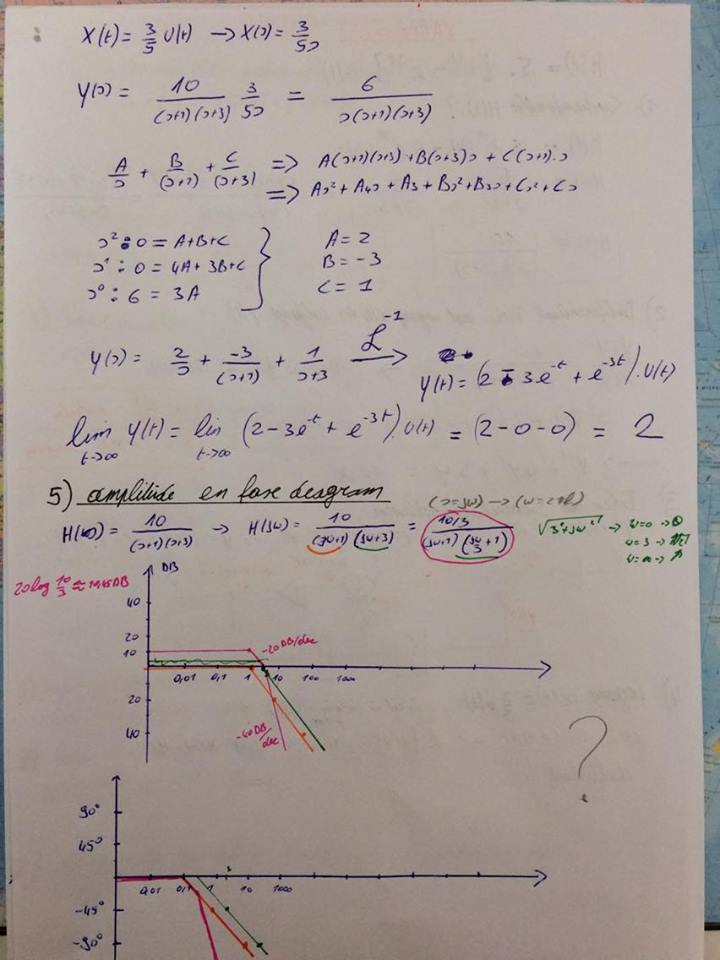 X(t) = 3/5 U(t) → X(s) = 3/5s
Y(s) = 10/((s+1)(s+3)) 3/5s = 6/(s(s+1)(s+3))
A/s + B/(s+1) + C/(s+3) => A(s+1)(s+3) + B(s+3)s + C(s+1).s
=> As² + A4s + A3 + Bs² + B3s + Cs² + Cs
s² : 0 = A+B+C
s¹ : 0 = 4A + 3B + C
s⁰ : 6 = 3A
A = 2
B = -3
C = 1
Y(s) = 2/s + -3/(s+1) + 1/(s+3) L⁻¹ →
Y(t) = (2 - 3e^-t + e^-3t).U(t)
lim t→∞ Y(t) = lim t→∞ (2-3e^-t + e^-3t).U(t) = (2-0-0) = 2
5) amplitude en fase deagram
(s=jω) → (ω=2πf)
H(s) = 10/((s+1)(s+3)) → H(jω) = 10/((jω+1)(jω+3)) = (10/3)/((jω+1)(jω/3+1))
ω=0 → 0
ω=3 →
20log 10/3 ≈
DB
40
20
10
-20DB/dec
0,01 0,1 1 10 100 1000
20
-40DB/dec
40
?
90°
45°
0,01 0,1 1 10 1000
-45°
-90°